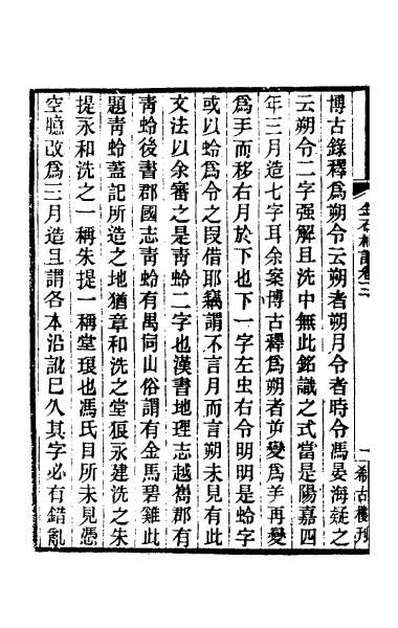 金石卷三
一希古樓刊
博古錄釋爲朔令云朔者朔月令者時令馮晏海疑之
云朔令二字强解且洗中無此銘識之式當是陽嘉四
年三月造七字耳余案博古釋爲朔者變爲再變
爲手而移右月於下也下一字左虫右令明明是蛉字
或以蛉爲令之叚借耶竊謂不言月而言朔未見有此
文法以余審之是靑蛉二字也漢書地理志越嶲郡有
靑蛉後書郡國志靑蛉有禺同山俗謂有金馬碧雞此
題靑蛉蓋記所造之地猶章和洗之堂狼永建洗之朱
提永和洗之一稱朱提一稱堂琅也馮氏目所未見憑
空臆改爲三月造且謂各本沿訛巳久其字必有錯亂